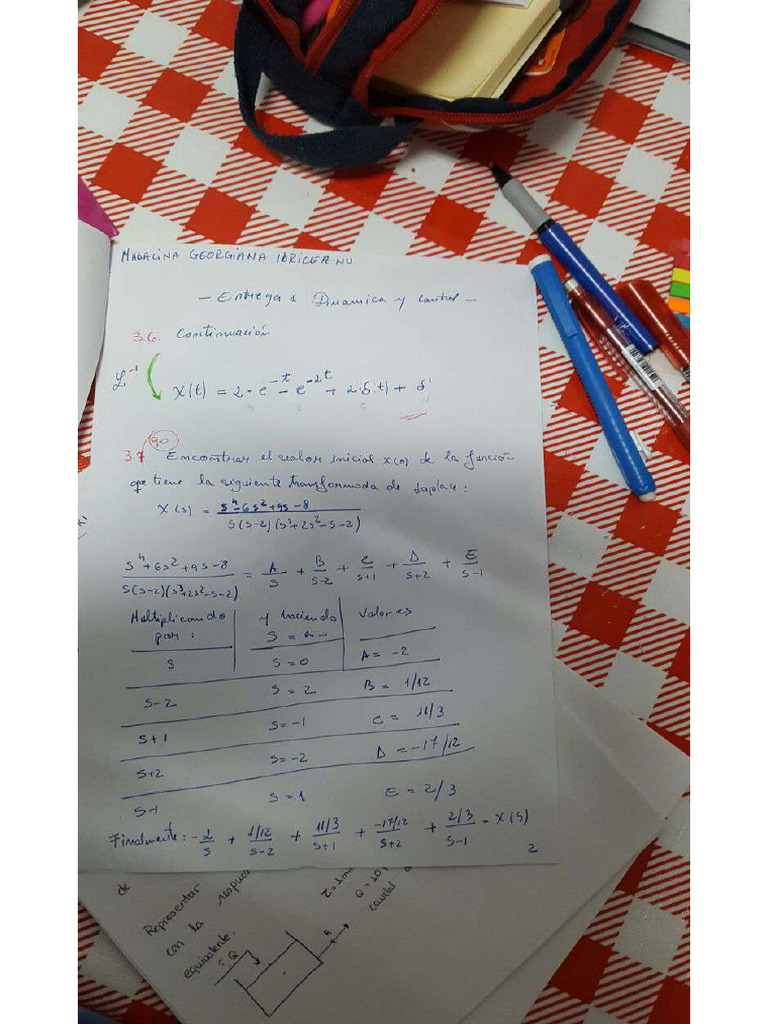 MADALINA GEORGIANA IDRICEANU
- Entrega 1 Dinamica y control -
3.6. Continuación
ℒ⁻¹
X(t) = 2 - e^-t - e^-2t + 2·δ(t) + δ'
90
3.7 Encontrar el valor inicial x(0) de la función
que tiene la siguiente transformada de Laplace:
X(s) = (s⁴-6s²+9s-8) / (s(s-2)(s³+2s²-s-2))
(s⁴+6s²+9s-8) / (s(s-2)(s³+2s²-s-2)) = A/s + B/s-2 + C/s+1 + D/s+2 + E/s-1
Multiplicando por: y haciendo s = a- Valores
s s=0 A = -2
s-2 s = 2 B = 1/12
s+1 s=-1 C = 11/3
s+2 s=-2 D = -17/12
s-1 s = 1 E = 2/3
Finalmente: -2/s + 1/12/s-2 + 11/3/s+1 + -17/12/s+2 + 2/3/s-1 = X(s)
2
de
Representar
con la
equivalente.
Q
Q = 10
caudal